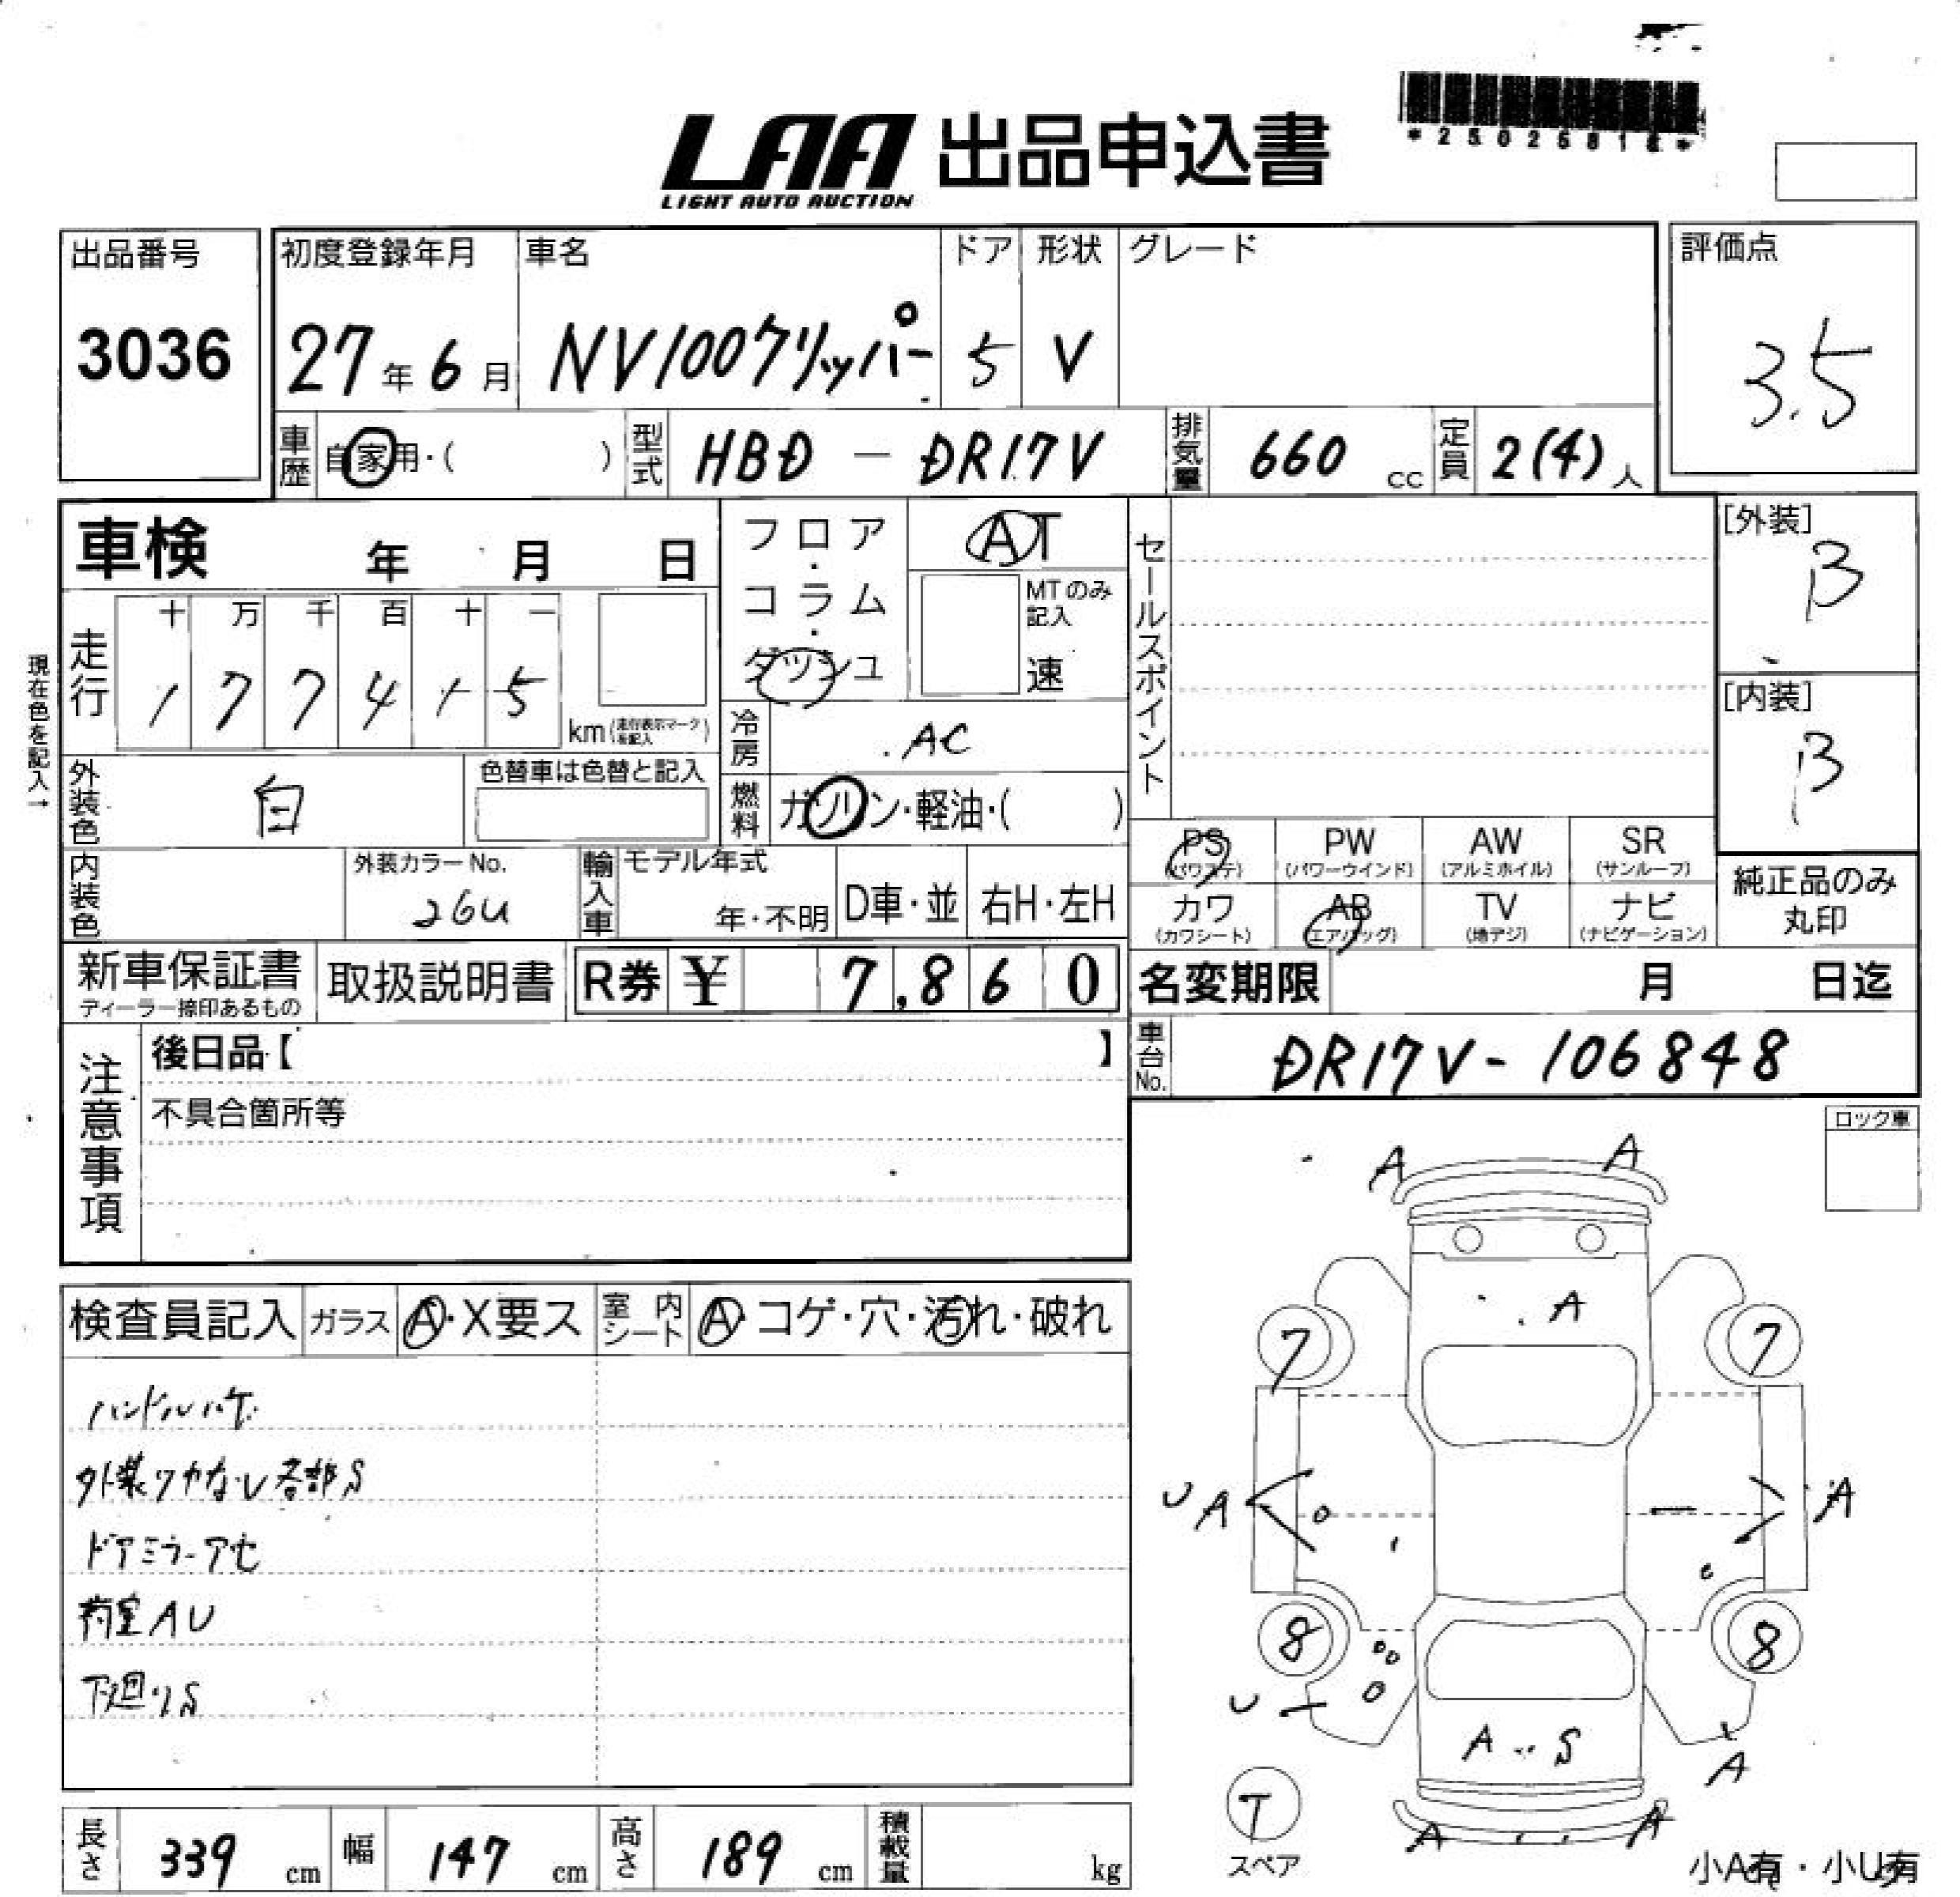 *25025818*
LAA 出品申込書
LIGHT AUTO AUCTION
出品番号
3036
初度登録年月
27年6月
車名
NV100クリッパー
ドア
5
形状
V
グレード
評価点
3.5
車歴 自家用・( )
型式 HBD - DR17V
排気量 660 cc
定員 2(4)人
車検 年 月 日
フロア・コラム・ダッシュ
AT
MTのみ記入
速
セールスポイント
[外装]
B
[内装]
B
現在色を記入→
走行
十 万 千 百 十 一
1 7 7 4 1 5
km(走行表示マークを記入)
冷房 AC
燃料 ガソリン・軽油・( )
外装色 白
色替車は色替と記入
内装色
外装カラーNo.
26U
輸入車
モデル年式
年・不明
D車・並
右H・左H
PS
(パワステ)
PW
(パワーウインド)
AW
(アルミホイル)
SR
(サンルーフ)
カワ
(カワシート)
AB
(エアバッグ)
TV
(地デジ)
ナビ
(ナビゲーション)
純正品のみ
丸印
新車保証書
ディーラー捺印あるもの
取扱説明書
R券 ¥ 7,860
名変期限 月 日迄
車台No. DR17V-106848
注意事項
後日品【 】
不具合箇所等
ロック車
検査員記入
ガラス A・X要ス
室内シート A・コゲ・穴・汚れ・破れ
ハンドルハゲ
外装ツヤなし各部S
ドアミラーアセ
荷室AU
下廻りS
A A
A
7 7
U A A
8 8
U
A S
A
T
スペア
A A
小A有・小U有
長さ 339 cm
幅 147 cm
高さ 189 cm
積載量 kg